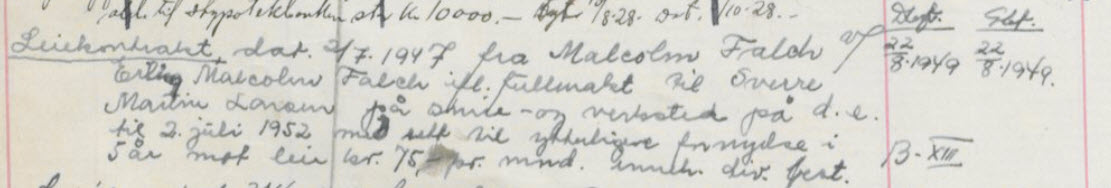 obl. til Hypotekbanken stor kr. 10000.— 1/8-28. 1/10-28.—
Dagf. Glbf.
Leiekontrakt, dat. 2/7.1947 fra Malcolm Falch v/ 22/8.1949 22/8.1949.
Erling Malcolm Falch ifl. fullmakt til Sverre
Martin Larsen på smie- og verksted på d.e.
til 2. juli 1952 med rett til ytterligere fornyelse i
5 år mot leie kr. 75,- pr. mnd. inneh. div. best. B-XIII